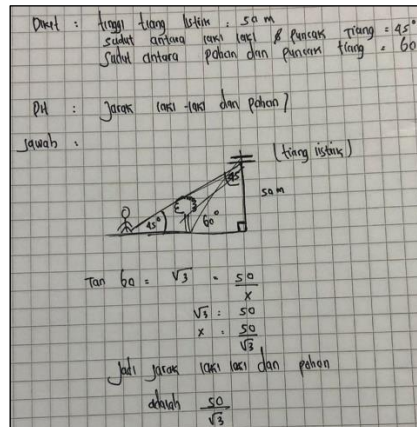 Diket : tinggi tiang listrik : 50 m
sudut antara laki laki & puncak tiang = 45°
Sudut antara pohon dan puncak tiang = 60
DH : Jarak laki-laki dan pohon?
Jawab :
(tiang listrik)
45
50 m
45°
60°
Tan 60 = √3 = 50/x
√3 = 50
x = 50/√3
Jadi jarak laki laki dan pohon
adalah 50/√3